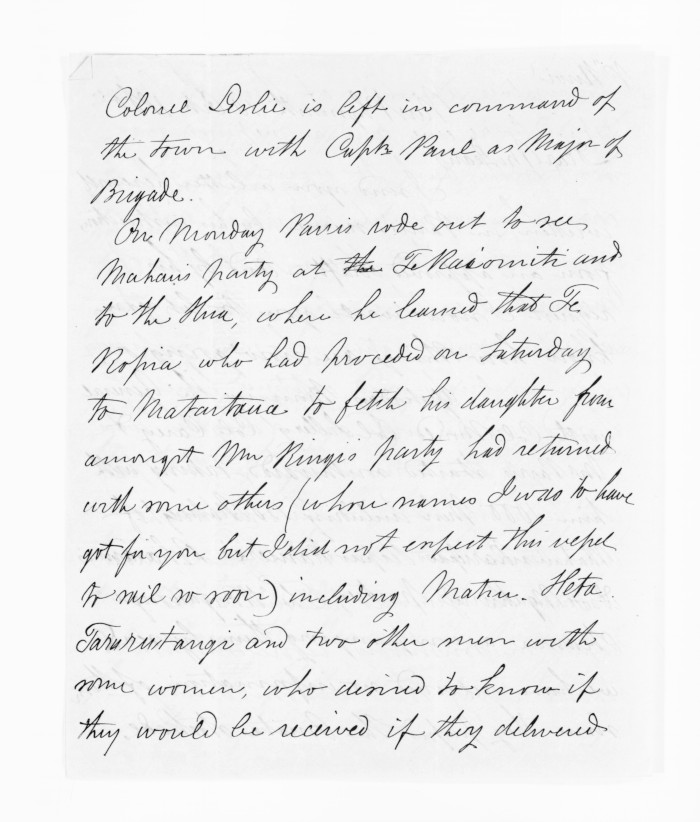 Colonel Leslie is left in command of
the town with Captn Paul as Major of
Brigade.
On Monday Parris rode out to see
Mahaus party at the Te Kaiomiti and
to the Hua, where he learned that Te
Ropia who had proceded on Saturday
to Mataitawa to fetch his daughter from
amongst Wm Kingis party had returned
with some others (whose names I was to have
got for you but I did not expect this vessel
to sail so soon) including Matiu. Heta.
Tarurutangi and two other men with
some women, who desired to know if
they would be received if they delivered